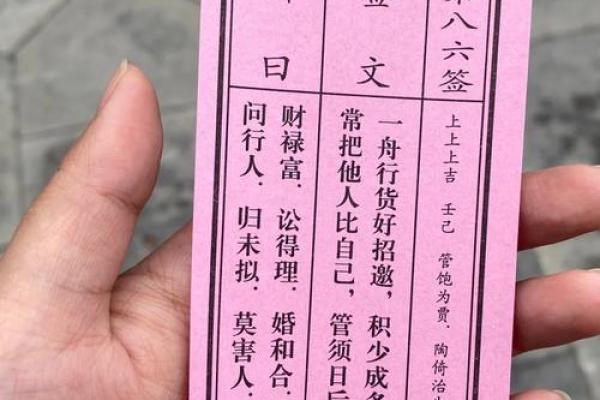 第八六签
上上上吉 壬己 管饱为贾. 陶倚治生
签文
一舟行货好招邀，积少成多
常把他人比自己，管须日后
曰
财禄富. 讼得理. 婚和合.
问行人. 归未拟. 莫害人.